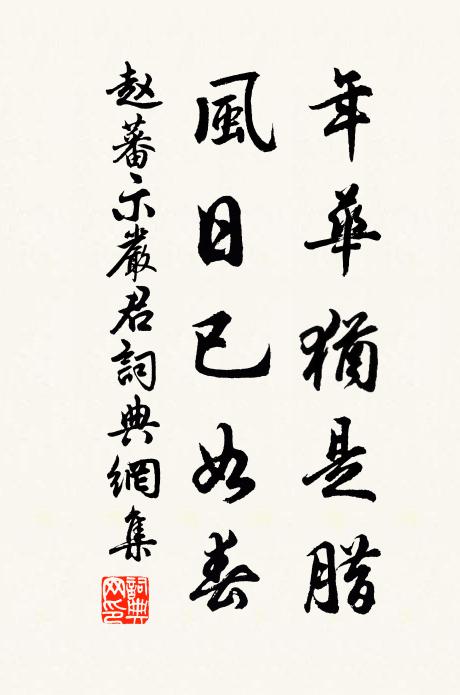 年華猶是腊
風日已如春
赵蕃示嚴君詞典網集
詞典网印